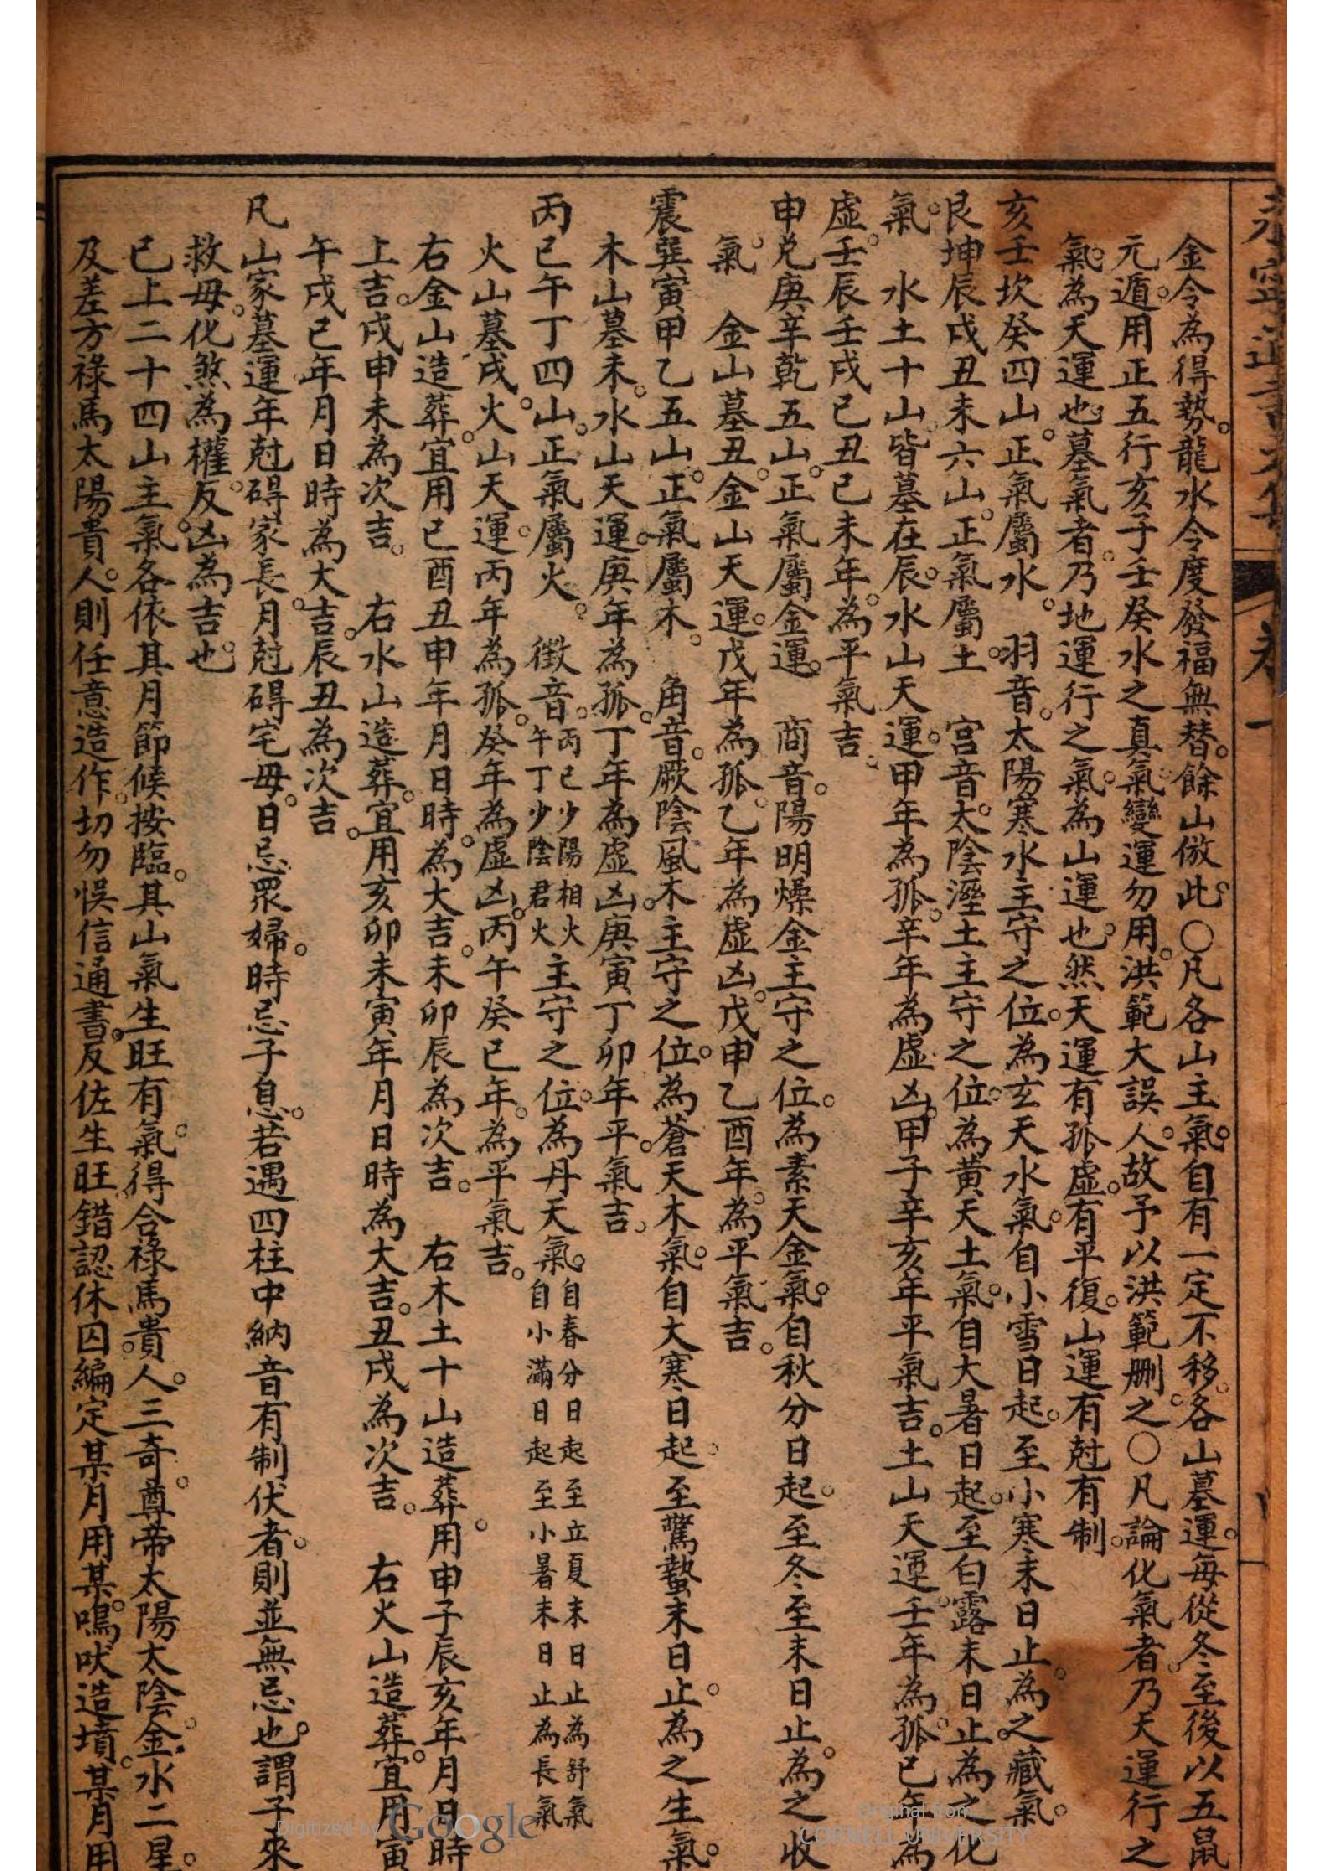 金令為得勢。龍水令度發福無替。餘山倣此。○凡各山主氣。自有一定不移。各山墓運。每從冬至後以五鼠
元遁。用正五行亥子壬癸水之真氣變運勿用。洪範大誤人。故予以洪範刪之○凡論化氣者。乃天運行之
氣。為天運也。墓氣者。乃地運行之氣。為山運也。然天運有孤虛。有平復。山運有尅有制
亥壬坎癸四山。正氣屬水。羽音。太陽寒水主守之位。為玄天水氣。自小雪日起。至小寒末日止。為之藏氣。
艮坤辰戌丑未六山。正氣屬土。宮音。太陰溼土主守之位。為黃天土氣。自大暑日起。至白露末日止。為之化
氣。水土十山。皆墓在辰。水山天運。甲年為孤。辛年為虛凶。甲子辛亥年平氣吉。土山天運。壬年為孤。己年為
虛。壬辰壬戌己丑己未年。為平氣吉。
申兌庚辛乾五山。正氣屬金運。商音。陽明燥金主守之位。為素天金氣。自秋分日起。至冬至末日止。為之收
氣。金山墓丑。金山天運。戊年為孤。乙年為虛凶。戊申乙酉年。為平氣吉。
震巽寅甲乙五山。正氣屬木。角音。厥陰風木主守之位。為蒼天木氣。自大寒日起。至驚蟄末日止。為之生氣。
木山墓未。水山天運。庚年為孤。丁年為虛凶。庚寅丁卯年平氣吉。
丙巳午丁四山。正氣屬火。徵音。丙巳少陽相火午丁少陰君火主守之位。為丹天氣。自春分日起至立夏末日止為舒氣自小滿日起至小暑末日止為長氣
火山墓戌。火山天運。丙年為孤。癸年為虛凶。丙午癸巳年。為平氣吉。
右金山造葬。宜用巳酉丑申年月日時。為大吉。未卯辰為次吉。右木土十山造葬。用申子辰亥年月日時
上吉。戌申未為次吉。右水山造葬。宜用亥卯未寅年月日時為大吉。丑戌為次吉。右火山造葬。宜用寅
午戌巳年月日時為大吉。辰丑為次吉。
凡山家墓運年尅碍家長。月尅碍宅母。日忌眾婦。時忌子息。若遇四柱中納音有制伏者。則並無忌也。謂子來
救母。化煞為權。反凶為吉也。
已上二十四山主氣。各依其月節候按臨。其山氣生旺有氣。得合祿馬貴人。三奇尊帝太陽太陰。金水二星。
及差方祿馬太陽貴人。則任意造作。切勿悞信通書。反佐生旺。錯認休囚。編定某月用某。鳴吠造墳。某月用